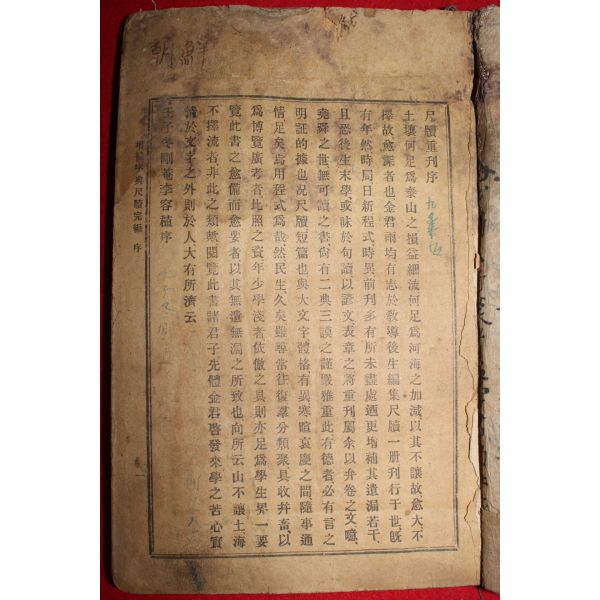 尺牘重刊序
土壤何足爲泰山之損益細流何足爲河海之加減以其不讓故愈大不
擇故愈深者也金君雨均有志於敎導後生編集尺牘一册刊行于世旣
有年然時局日新程式時異前刊多有所未盡處迺更增補其遺漏若干
且恐後生末學或昧於句讀以諺文表章之將重刊屬余以弁卷之文噫
堯舜之世無可讀之書尙有二典三謨之謹嚴雅重此有德者必有言之
明証的據也况尺牘短篇也與大文字體格有異寒暄哀慶之間隨事通
情足矣焉用程式爲哉然民生久矣雖尋常往復羣分類聚具收幷畜以
爲博覽廣考者比照之資年少學淺者依倣之具則亦足爲學生界一要
覽此書之愈備而愈要者以其無遺無漏之所致也向所云山不讓土海
不擇流者非此之類歟閱覽此書諸君子先體金君啓發來學之苦心實
情於文字之外則於人大有所濟云
壬子冬剛菴李容稙序
尺牘完編 序
朝鮮